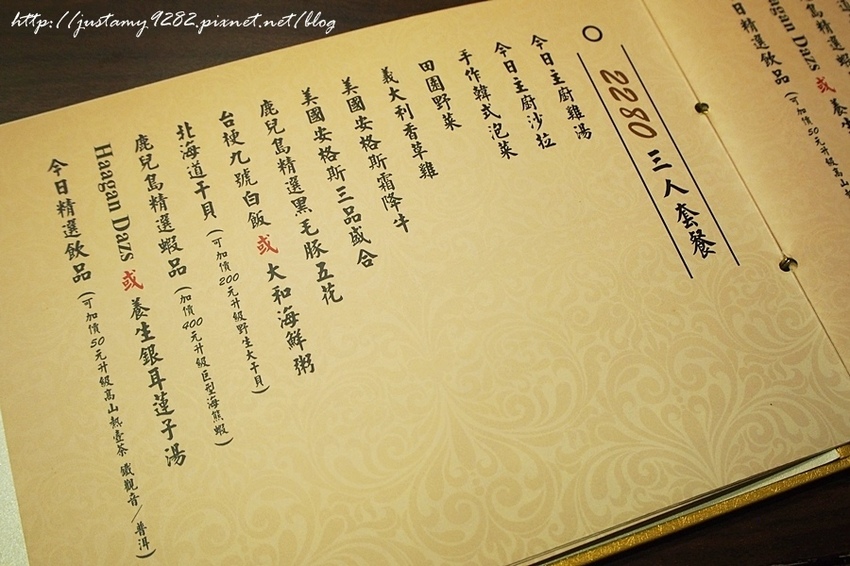 http://justamy9282.pixnet.net/blog
2280 三人套餐
今日主廚雞湯
今日主廚沙拉
手作韓式泡菜
田園野菜
義大利香草雞
美國安格斯霜降牛
美國安格斯三品盛合
鹿兒島精選黑毛豚五花
台梗九號白飯 或 大和海鮮粥
北海道干貝 (可加價200元升級野生大干貝)
鹿兒島精選蝦品 (加價400元升級巨型海熊蝦)
Haagan Dazs 或 養生銀耳蓮子湯
今日精選飲品 (可加價50元升級高山熱壺茶 鐵觀音/普洱)
鹿兒島精選蝦
Haagan Dazs 或 養生
今日精選飲品 (可加價50元升級高山